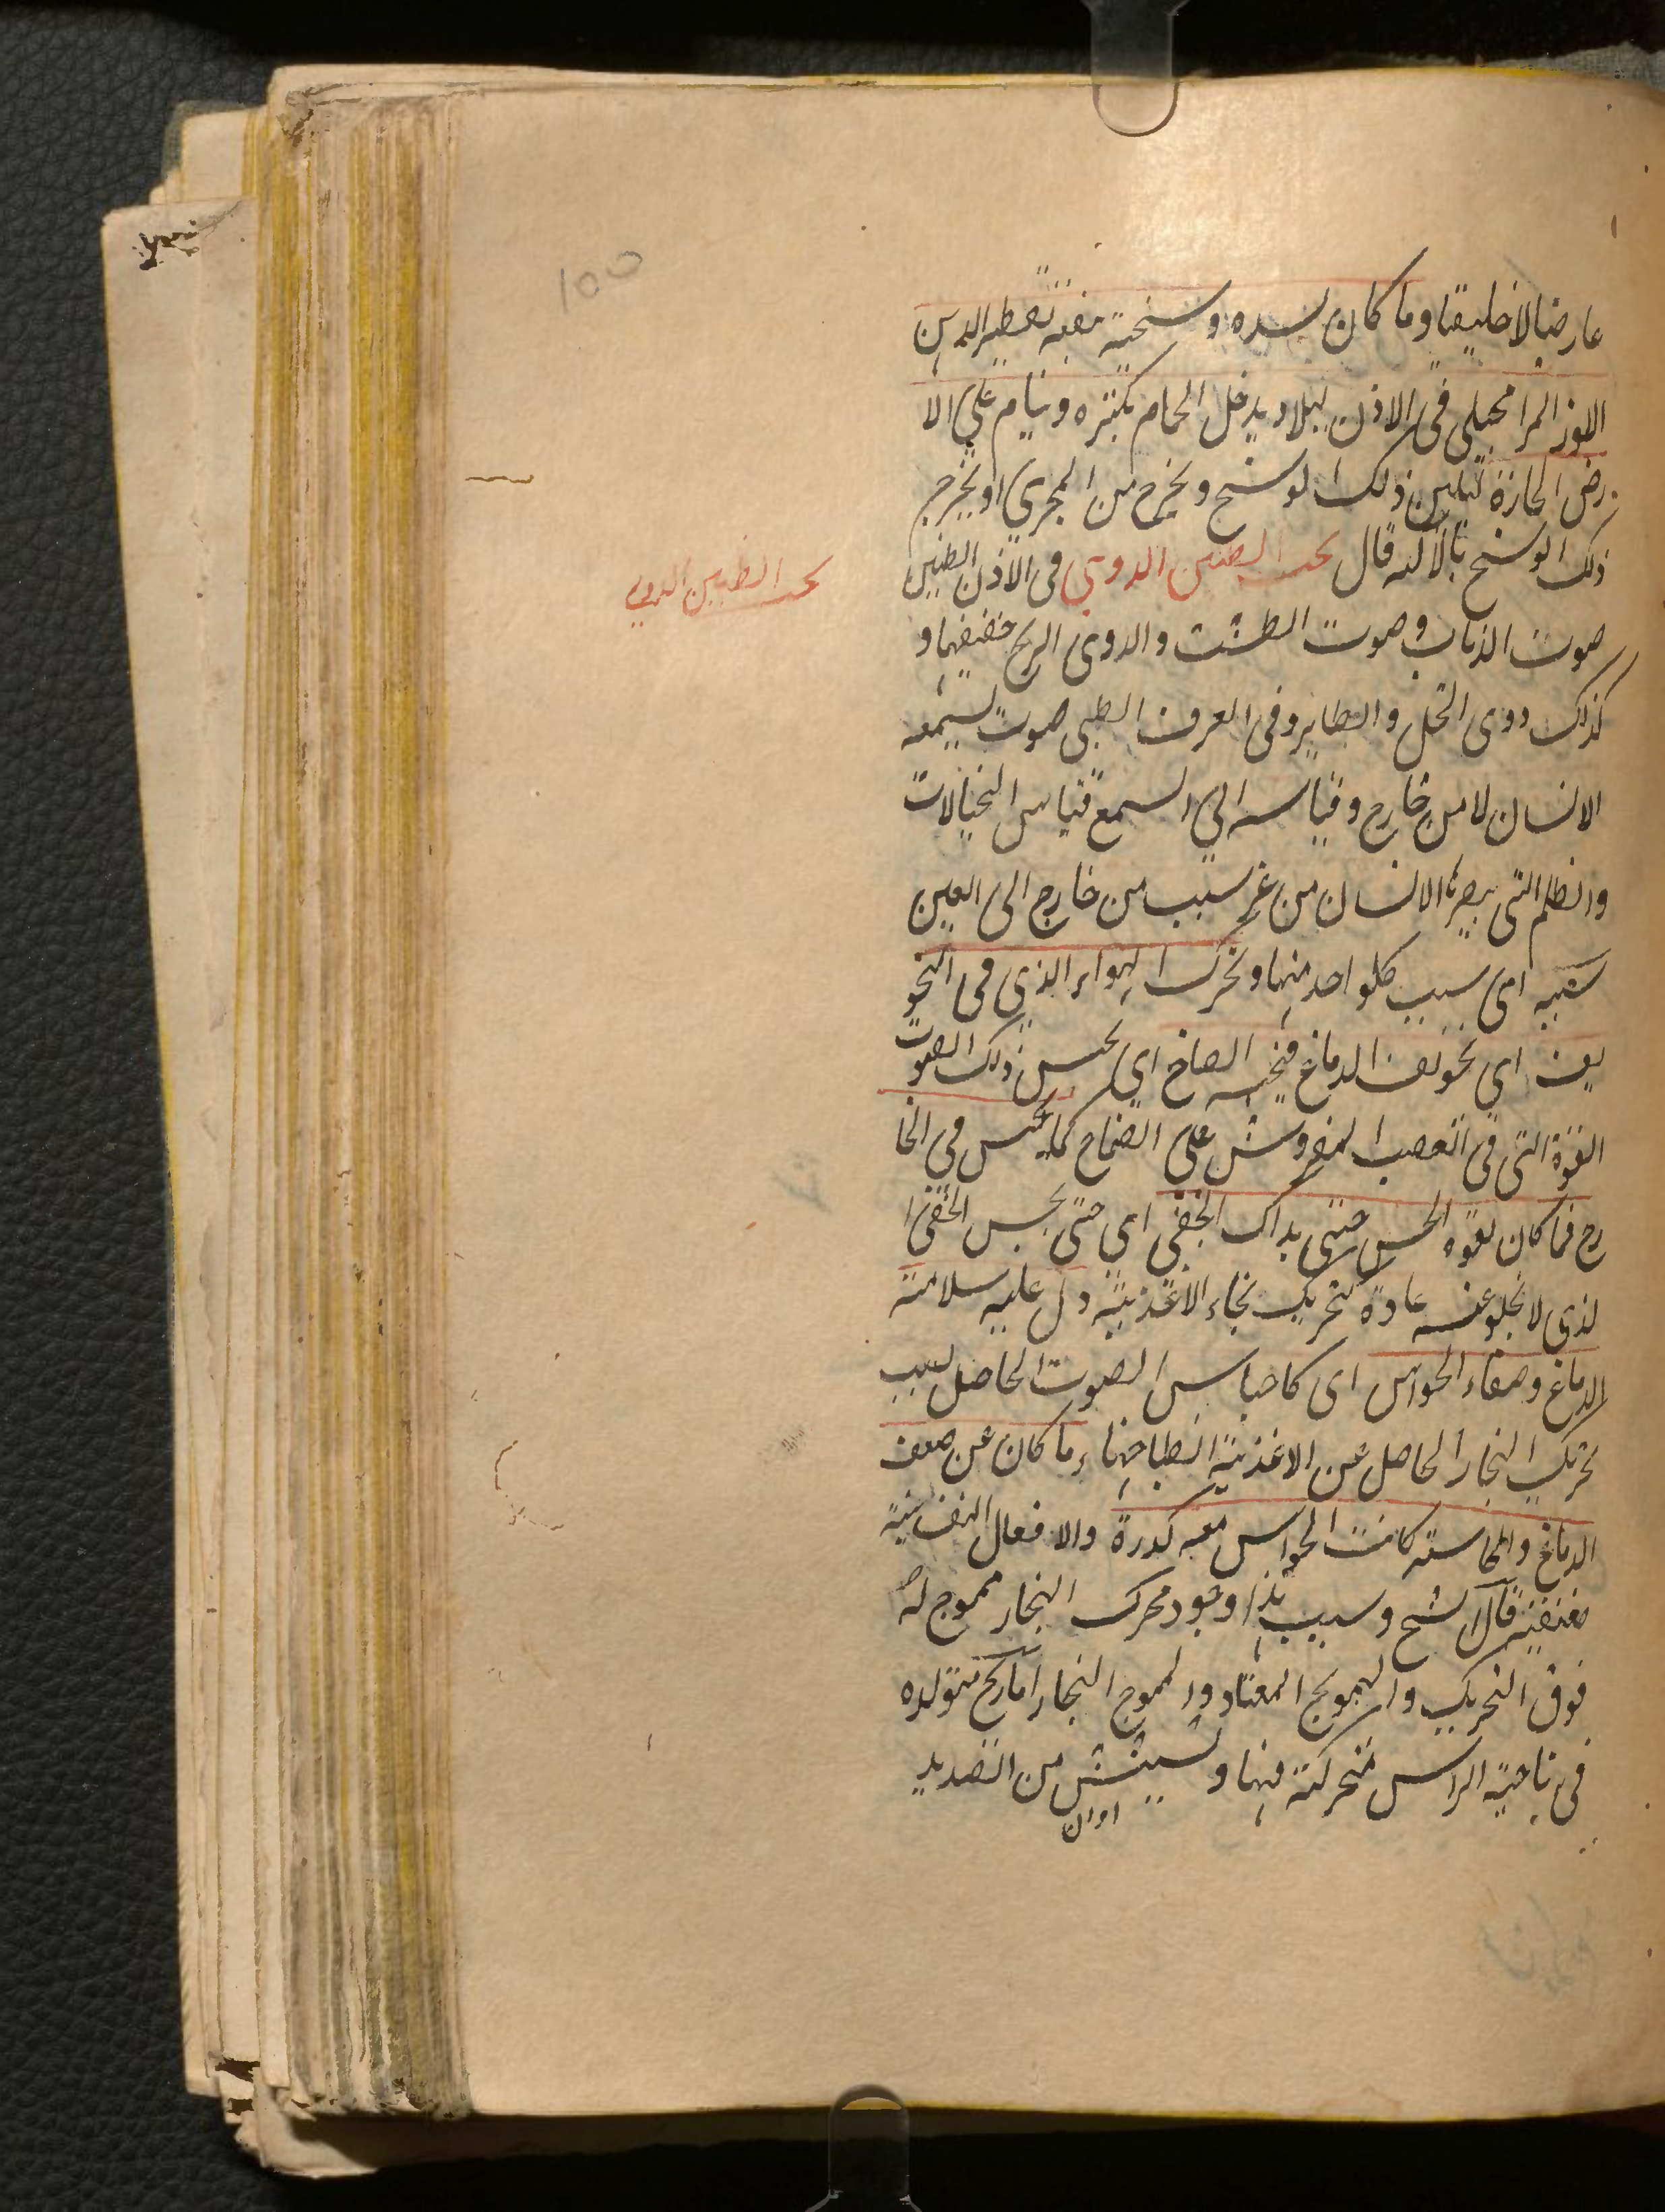 عارضيا لا خليقيا وما كان لسده وسخية نفعه تقطير الدهن
اللوز المر المحبلى فى الاذن ليلا ويدخل الحمام بكثره وينام على الا
رض الحارة لتلين ذلك الوسخ ويخرج من المجرى او يخرج
ذلك الوسخ بالآله قال بحث الطنين الدوى فى الاذن الطنين
بحث الطنين الدوى
صوت الذباب وصوت الطشت والدوى الريح حفيفها و
كذلك دوى النحل والطاير وفى العرف الطبى صوت يسمعه
الانسان لا من خارج وقياسه الى السمع قياس الخيالات
والظلم التى يبصرها الانسان من غير سبب من خارج الى العين
سببه اى سبب كلواحد منها وتحرك الهواء الذى فى التجو
يف اى تجويف الدماغ فيحسه الصماخ اى يحس ذلك الصوت
القوة التى فى العصب المفروش على الصماخ كما يحس فى الخا
رج فما كان لقوة الحس حتى يدرك الخفى اى حتى يحس الخفى ا
لذى لا يخلو عنه عادة كتحريك بخار الاغذية دل عليه سلامة
الدماغ وصفاء الحواس اى كاحساس الصوت الحاصل بسبب
تحريك البخار الحاصل عن الاغذية انطباخها وما كان عن ضعف
الدماغ والحاسته كانت الحواس معه كدرة والافعال النفسانية
ضعيفة قال الشيخ وسبب هذا وجود محرك البخار مموج له
فوق التحريك والتمويج المعتاد والمموج البخار اما ريح متولده
فى ناحية الراس متحركة فيها ونشيش من الصديد
اوان
100